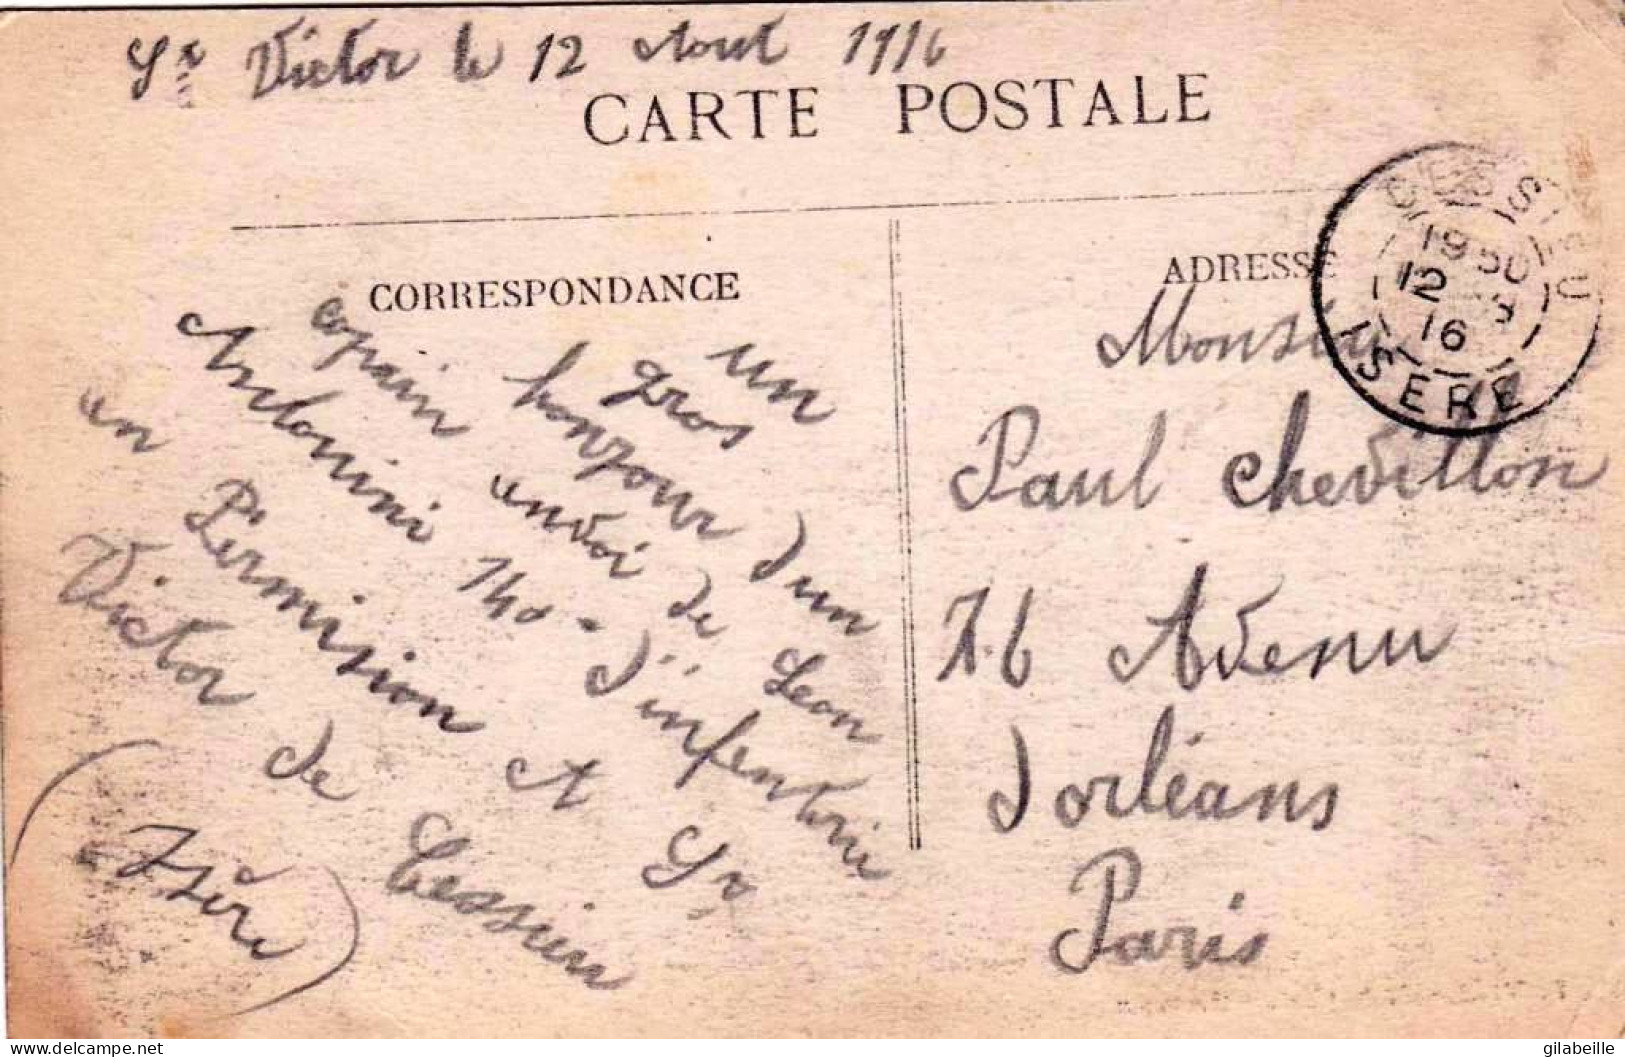 St Victor le 12 Aout 1916
CARTE POSTALE
CORRESPONDANCE
un
gros
bonjour d'un
copain envoi de Leon
Antonini 140e d'infentrie
en Permision A St
Victor de Cessieu
(Isère)
ADRESSE
Monsieur
Paul Chevillon
76 Avenu
d'orléans
Paris
CESSIEU
1950
12 8
16
ISERE
gilabeille